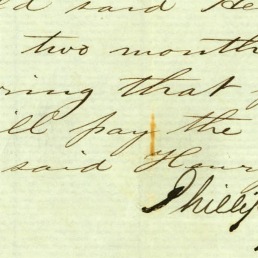 said He
two month
ring that
ill pay the
said Henry
Phillip